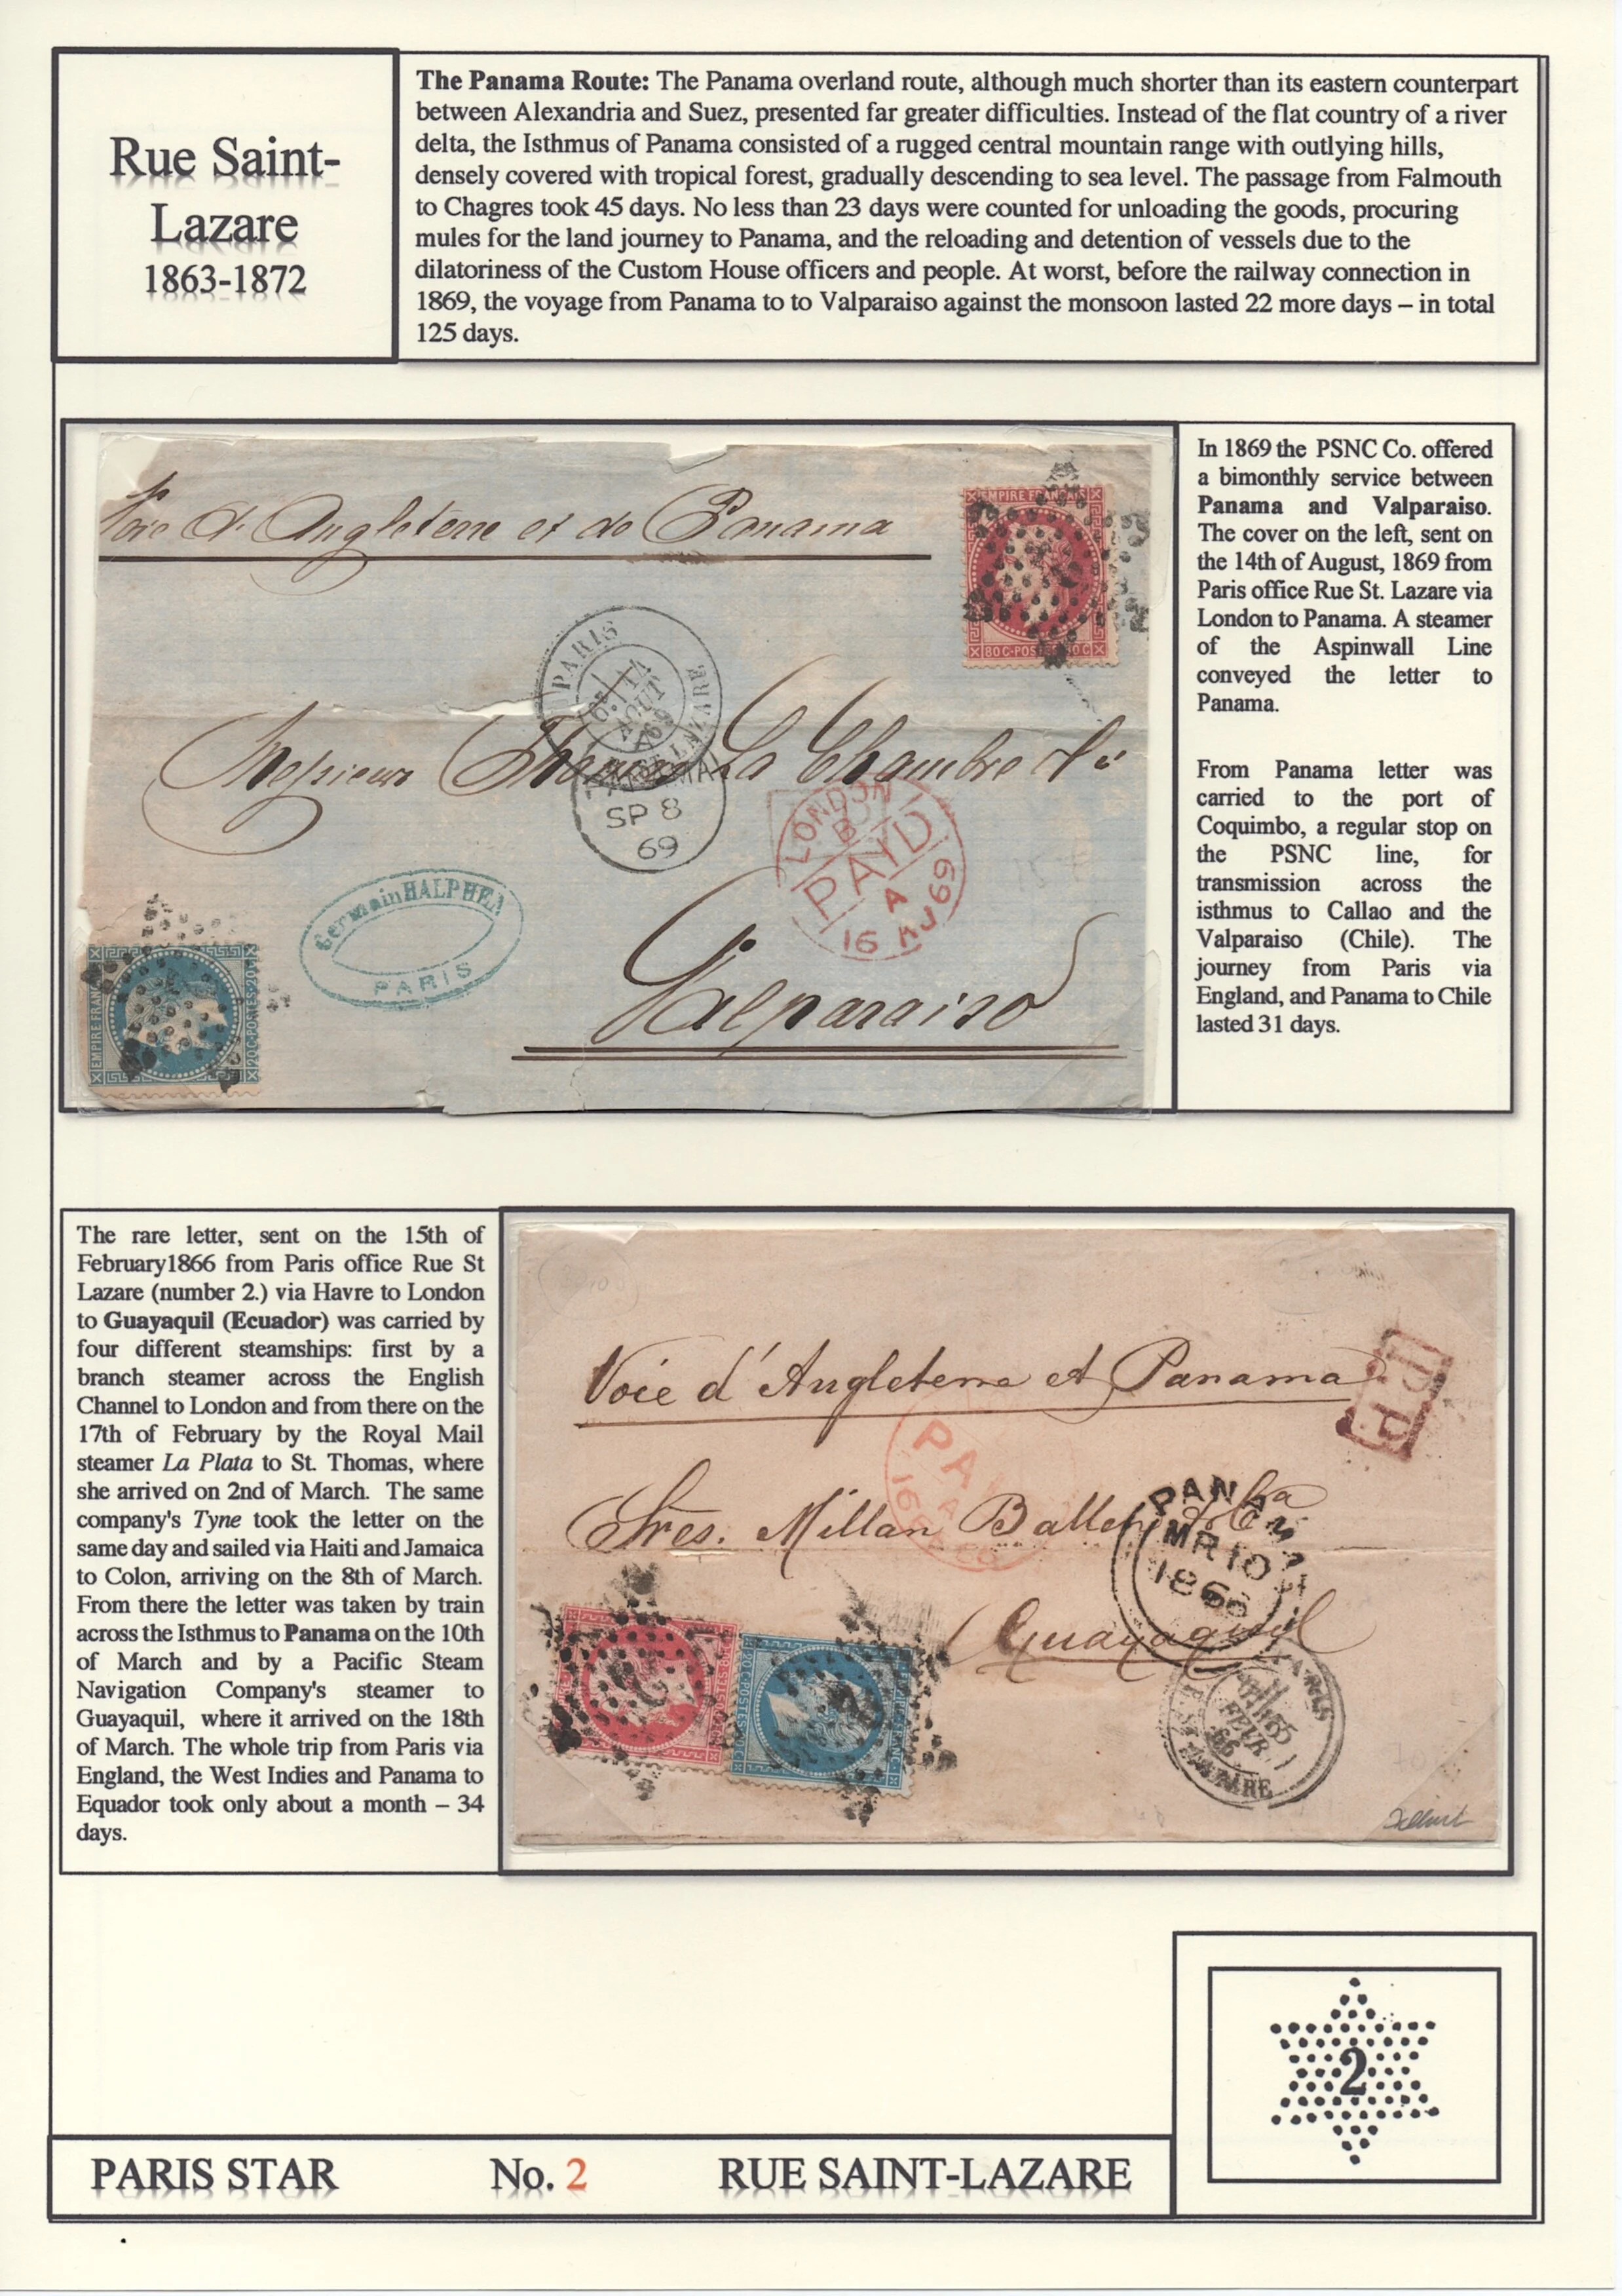 Rue Saint-
Lazare
1863-1872
The Panama Route: The Panama overland route, although much shorter than its eastern counterpart
between Alexandria and Suez, presented far greater difficulties. Instead of the flat country of a river
delta, the Isthmus of Panama consisted of a rugged central mountain range with outlying hills,
densely covered with tropical forest, gradually descending to sea level. The passage from Falmouth
to Chagres took 45 days. No less than 23 days were counted for unloading the goods, procuring
mules for the land journey to Panama, and the reloading and detention of vessels due to the
dilatoriness of the Custom House officers and people. At worst, before the railway connection in
1869, the voyage from Panama to to Valparaiso against the monsoon lasted 22 more days – in total
125 days.
Voie d'Angleterre et de Panama
EMPIRE FRANÇAIS
80 C-POSTES-80 C
PARIS
14
AOUT
69
R. ST LAZARE
Messieurs Thomas La Chambre &
PANAMA
SP 8
69
LONDON
B
PAYD
A
16 AU 69
Germain HALPHEN
PARIS
EMPIRE FRANC
20C-POSTES-20C
Valparaiso
In 1869 the PSNC Co. offered
a bimonthly service between
Panama and Valparaiso.
The cover on the left, sent on
the 14th of August, 1869 from
Paris office Rue St. Lazare via
London to Panama. A steamer
of the Aspinwall Line
conveyed the letter to
Panama.
From Panama letter was
carried to the port of
Coquimbo, a regular stop on
the PSNC line, for
transmission across the
isthmus to Callao and the
Valparaiso (Chile). The
journey from Paris via
England, and Panama to Chile
lasted 31 days.
The rare letter, sent on the 15th of
February1866 from Paris office Rue St
Lazare (number 2.) via Havre to London
to Guayaquil (Ecuador) was carried by
four different steamships: first by a
branch steamer across the English
Channel to London and from there on the
17th of February by the Royal Mail
steamer La Plata to St. Thomas, where
she arrived on 2nd of March. The same
company's Tyne took the letter on the
same day and sailed via Haiti and Jamaica
to Colon, arriving on the 8th of March.
From there the letter was taken by train
across the Isthmus to Panama on the 10th
of March and by a Pacific Steam
Navigation Company's steamer to
Guayaquil, where it arrived on the 18th
of March. The whole trip from Paris via
England, the West Indies and Panama to
Equador took only about a month – 34
days.
Voie d'Angleterre et Panama
P.P.
Sres. Millan Ballen
PANAMA
MR 10
1866
Guayaquil
20 C-POSTES
EMPIRE FRANC
PARIS
FEVR
66
R. ST LAZARE
2
PARIS STAR No. 2 RUE SAINT-LAZARE